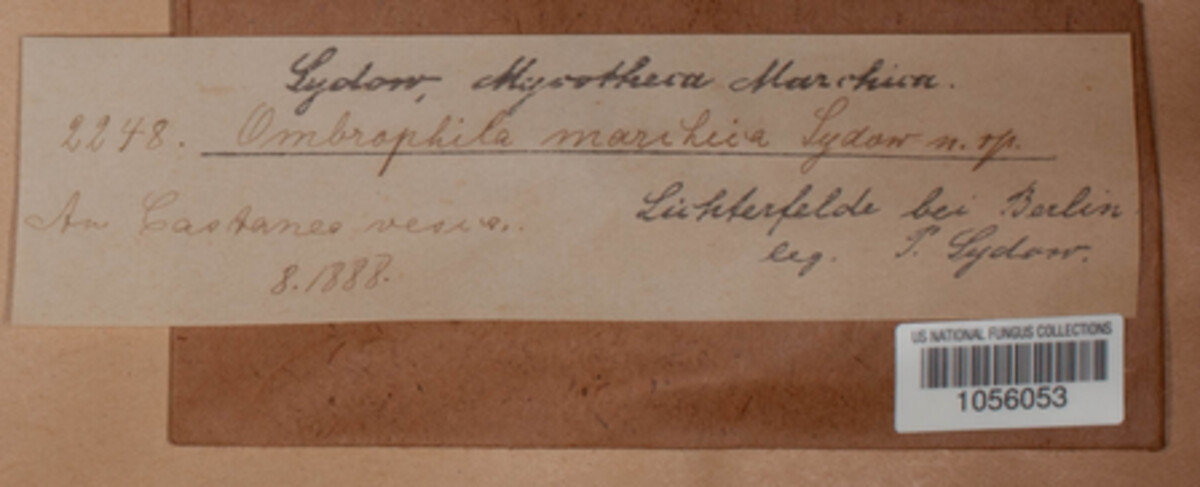 Sydow, Mycotheca Marchica.
2248. Ombrophila marchica Sydow n. sp.
An Castanea vesca.
8. 1888.
Lichterfelde bei Berlin
leg. P. Sydow.
US NATIONAL FUNGUS COLLECTIONS
1056053